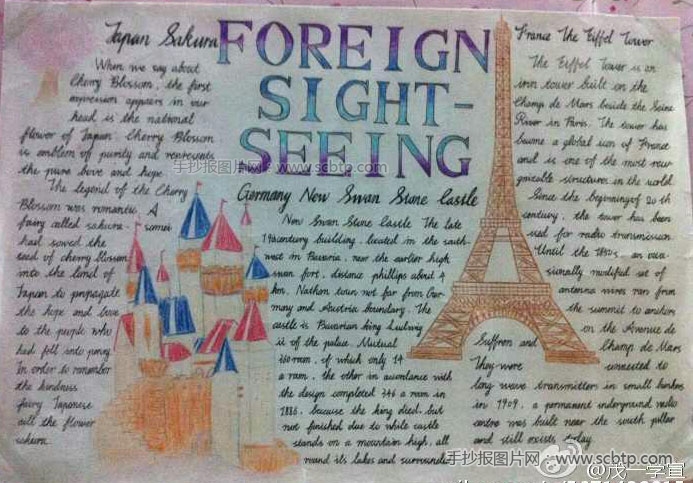 Japan Sakura
When we say about
Cherry Blossom, the first
impression appears in our
head is the national
flower of Japan. Cherry Blossom
is emblem of purity and represents
the pure love and hope.
The legend of the Cherry
Blossom was romantic. A
fairy called sakura.
had sowed the
seed of cherry blossom
into the land of
Japan to propagate
the hope and love
to the people who
had fell into
In order to remember
the kindness
fairy Japanese
call the flower
sakura.
FOREIGN
SIGHT-
SEEING
手抄报图片网 www.scbtp.com
Germany New Swan Stone Castle
New Swan Stone Castle The late
19century building, located in the south-
west in Bavaria, near the earlier high
swan fort, distance phillips about 4
km. Nathon town not far from Ger-
many and Austria boundary. The
castle is Bavarian king Ludwig
ii of the palace. Mutual
of which only 14
a room, the other in accordance with
the design completed 346 a room in
1886, because the king died, but
not finished due to while castle
stands on a mountain high, all
round its lakes and
France The Eiffel Tower
The Eiffel Tower is an
iron tower built on the
Champ de Mars beside the Seine
River in Paris. The tower has
become a global icon of France
and is one of the most recu-
gnizable structures in the world.
Since the beginning of 20 th
century, the tower has been
used for radio transmission
Until the 1950s, an occa-
sionally modified set of
antenna wires ran from
the summit to anchors
on the Avenue de
Suffren and Champ de Mars
They were connected to
long wave transmitters in small bunkers
in 1909, a permanent underground radio
centre was built near the south pillar
and still exists today
手抄报图片网 www.scbtp.com
@茂一字宣